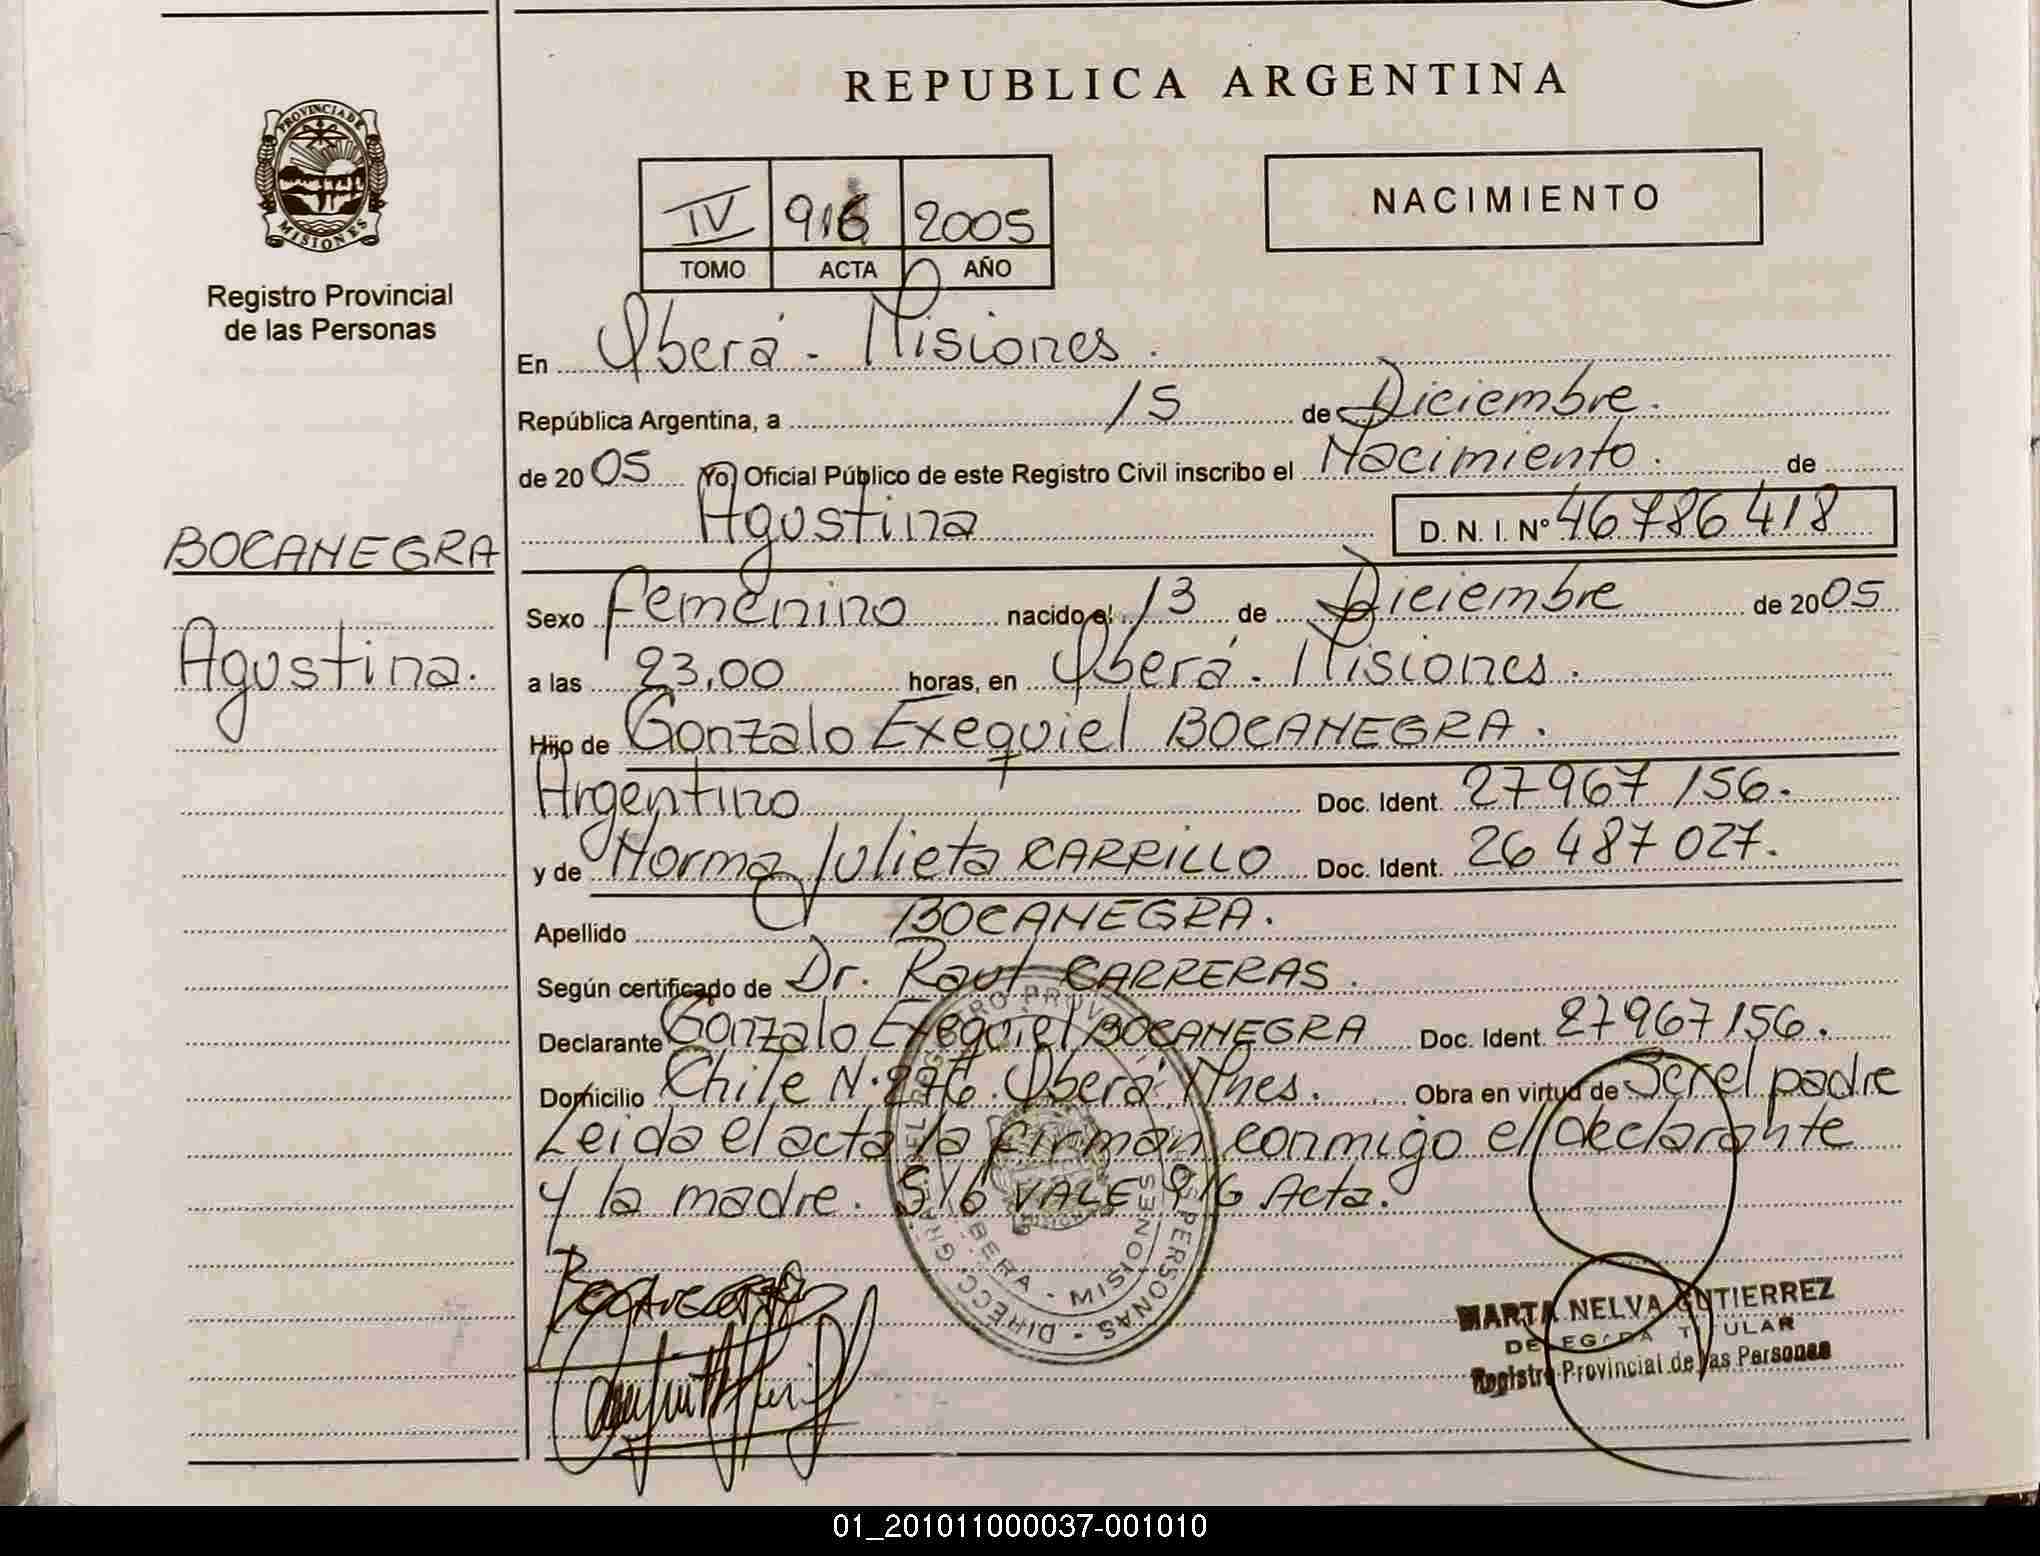 REPUBLICA ARGENTINA
PROVINCIA DE
MISIONES
Registro Provincial
de las Personas
IV 916 2005
TOMO ACTA AÑO
NACIMIENTO
En Oberá - Misiones.
República Argentina, a 15 de Diciembre.
de 2005 Yo, Oficial Público de este Registro Civil inscribo el Nacimiento. de
Agustina D. N. I. Nº 46786418
BOCANEGRA
Agustina.
Sexo femenino nacido el 13 de Diciembre de 2005
a las 23,00 horas, en Oberá - Misiones.
Hijo de Gonzalo Exequiel BOCANEGRA.
Argentino Doc. Ident. 27967156.
y de Norma Julieta CARRILLO Doc. Ident. 26487027.
Apellido BOCANEGRA.
Según certificado de Dr. Raul CARRERAS.
Declarante Gonzalo Exequiel BOCANEGRA Doc. Ident. 27967156.
Domicilio Chile N. 276. Oberá, Mnes. Obra en virtud de Ser el padre
Leida el acta la firman conmigo el declarante
y la madre. S/6 VALE 916 Acta.
BERA - MISIONES
PERSONAS - DIRECC. GRAL. DEL
MARTA NELVA GUTIERREZ
DELEGADA TITULAR
Registro Provincial de las Personas
01_201011000037-001010